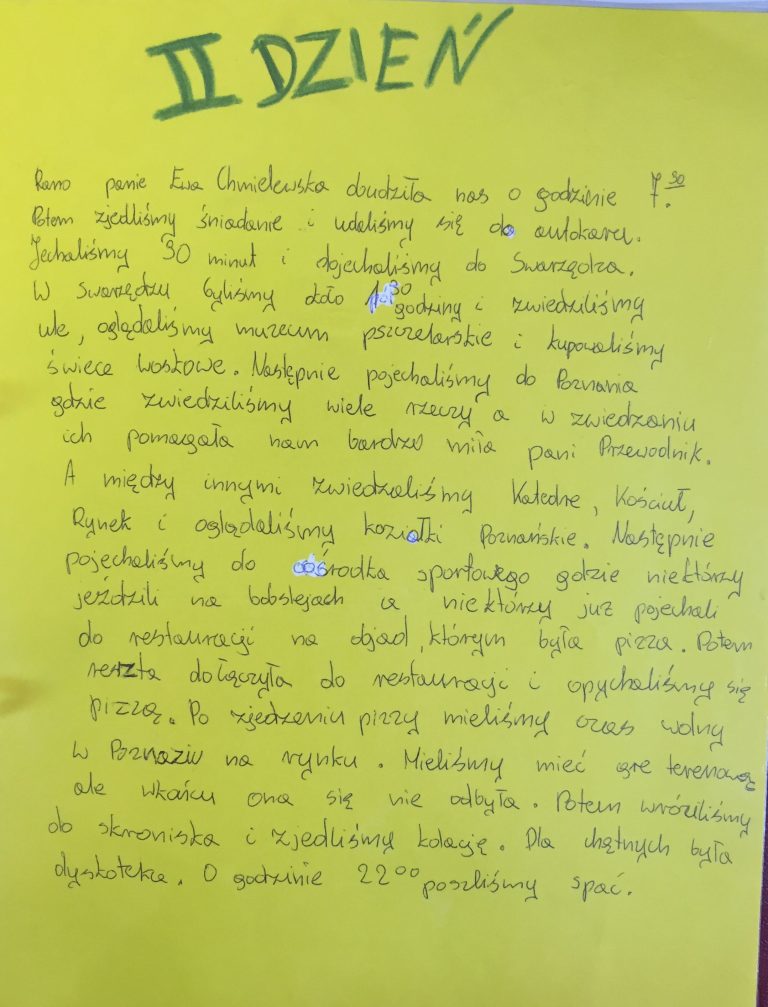 II DZIEŃ
Rano panie Ewa Chmielewska obudziła nas o godzinie 7.30
Potem zjedliśmy śniadanie i udaliśmy się do autokaru.
Jechaliśmy 30 minut i dojechaliśmy do Swarzędza.
W Swarzędzu byliśmy około godziny i zwiedziliśmy
ule, oglądaliśmy muzeum pszczelarskie i kupowaliśmy
świece woskowe. Następnie pojechaliśmy do Poznania
gdzie zwiedziliśmy wiele rzeczy a w zwiedzaniu
ich pomagała nam bardzo miła pani Przewodnik.
A między innymi zwiedzaliśmy Katedre, Kościół,
Rynek i oglądaliśmy koziołki Poznańskie. Następnie
pojechaliśmy do ośrodka sportowego gdzie niektórzy
jeździli na bobslejach a niektórzy już pojechali
do restauracji na objad, którym była pizza. Potem
reszta dołączyła do restauracji i opychaliśmy się
pizzą. Po zjedzeniu pizzy mieliśmy czas wolny
w Poznaziu na rynku. Mieliśmy mieć gre terenową
ale wkańcu ona się nie odbyła. Potem wróciliśmy
do skroniska i zjedliśmy kolację. Dla chętnych była
dyskoteka. O godzinie 22 00 poszliśmy spać.